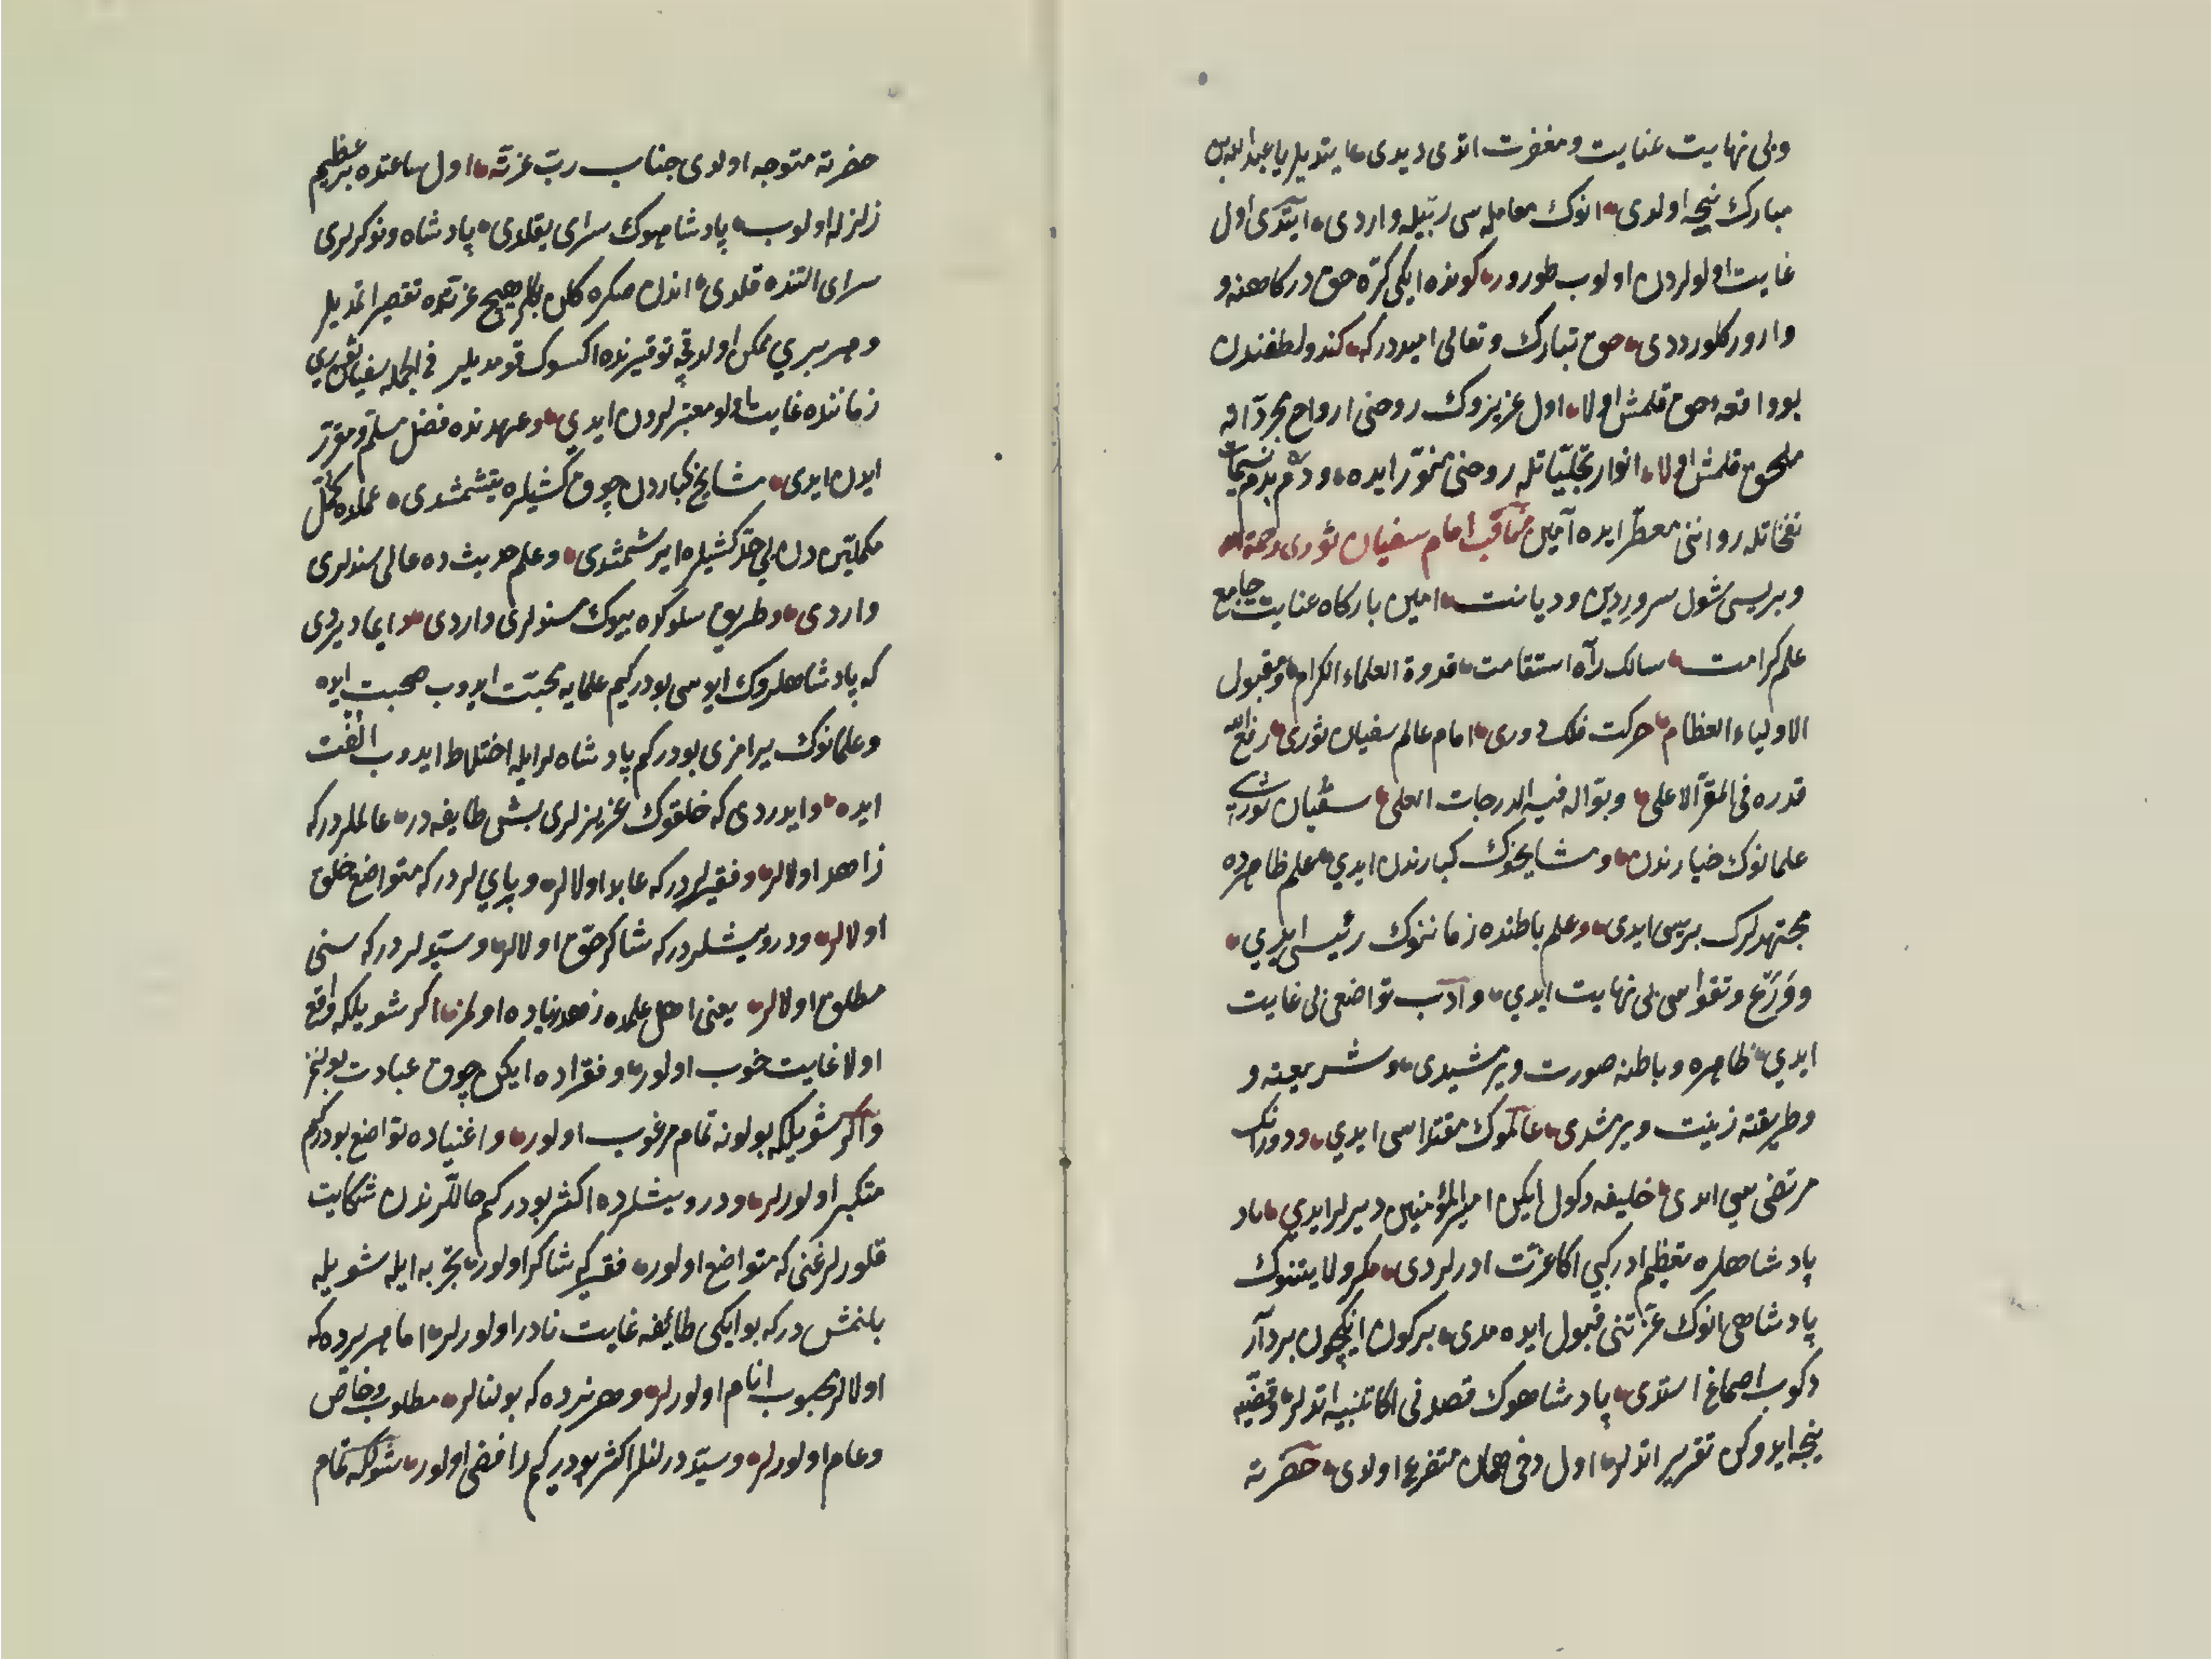 وبی نهایت عنایت و مغفرت اتدی دیدی ایتدیلر یا عبدالله بن
مبارك نیجه اولدی انوك معامله سی ربیله واردی ایتدی اول
غایت اولولردن اولوب طورور كونده ایكی كره حق دركاهنه و
وارور كلوردی حق تبارك وتعالی امیددر كه كندو لطفندن
بو واقعه حق قلمش اولا اول عزیزوك روحنی ارواح مجرداته
ملحق قلمش اولا انوار تجلیاتله روحنی منور ایده ودم بدم نسیمات
نفخاتله رواننی معطر ایده آمین مناقب امام سفیان ثوری رحمة الله
وبریسی شول سرور دین ودیانت امین باركاه عنایت جامع
علم كرامت سالك راه استقامت قدوة العلماء الكرام ومقبول
الاولیاء العظام حركت فلك دوری امام عالم سفیان ثوری رفع الله
قدره فی المقر الاعلی وبواله فیه الدرجات العلی سفیان ثوری
علمانوك خیارندن ومشایخوك كبارندن ایدی علم ظاهرده
مجتهدلرك بریسی ایدی وعلم باطنده زماننوك رئیسی ایدی
وورع وتقواسی بی نهایت ایدی وادب تواضعی بی غایت
ایدی ظاهره وباطنه صورت ویرمشیدی وشریعته و
وطریقته زینت ویرمشدی عالموك مقتداسی ایدی ودورانك
مرتضی سی ایدی خلیفه دكول ایكن امیر المؤمنین دیرلر ایدی
پادشاهلره تعظیم ادر كبی اكا عزت ادرلردی مكر ولایتنوك
پادشاهی انوك عزتنی قبول ایده مدی بركون انكچون بر دار
دكوب اصماغ استدی پادشاهوك قصدنی اكا تنبیه اتدلر وقضیه
نیجه ایدوكن تقریر اتدلر اول دخی همان متضرع اولدی حضرته
حضرته متوجه اولدی جناب رب عزته اول ساعتده بر عظیم
زلزله اولوب پادشاهوك سرای یقلدی پادشاه ونوكرلری
سرای التنده قلدی اندن صكره كلن بكلر هیچ عزتده تقصیر اتمدیلر
وهر بری ممكن اولدقچه توقیرنده اكسوك قومدیلر فی الجمله سفیان ثوری
زماننده غایت اولو معتبرلردن ایدی وعهدنده فضل مسلم ومقرر
ایدن ایدی مشایخ كباردن چوق كشیلره یتشمشدی علمده مكمل
مكملیتدن بی حد كشیلره ایرشمشدی وعلم حدیث ده عالی سندلری
واردی وطریق سلوكده بیوك مسندلری واردی ایما دیردی
كه پادشاهلروك ایوسی بودر كیم علمایه محبت ایدوب صحبت ایده
وعلمانوك یرامزی بودر كم پادشاه لر ایله اختلاط ایدوب الفت
ایده وایدردی كه خلقوك عزیزلری بش طایفه در عالملردر كه
زاهد اولالر وفقیرلردر كه عابد اولالر وبایلردر كه متواضع خلق
اولالر ودرویشلردر كه شاكر حق اولالر وسیدلردر كه سنی
مطلق اولالر یعنی اهل علمده زهد زیاده اولمز اكر شویلكه واقع
اولا غایت خوب اولور وفقراده ایكن چوق عبادت بولنمز
واكر شویلكه بولونه تمام مرغوب اولور واغنیاده تواضع بودر كیم
متكبر اولورلر ودرویشلرده اكثر بودر كم حاللرندن شكایت
قلورلر غنی كه متواضع اولور فقیر كه شاكر اولور تجربه ایله شویله
بلنمش در كه بو ایكی طائفه غایت نادر اولورلر اما هر یرده كه
اولالر محبوب انام اولورلر وهر نرده كه بولنالر مطلوب وخاص
وعام اولورلر وسید درلنلر اكثر بودر كیم رافضی اولور شولكه تمام